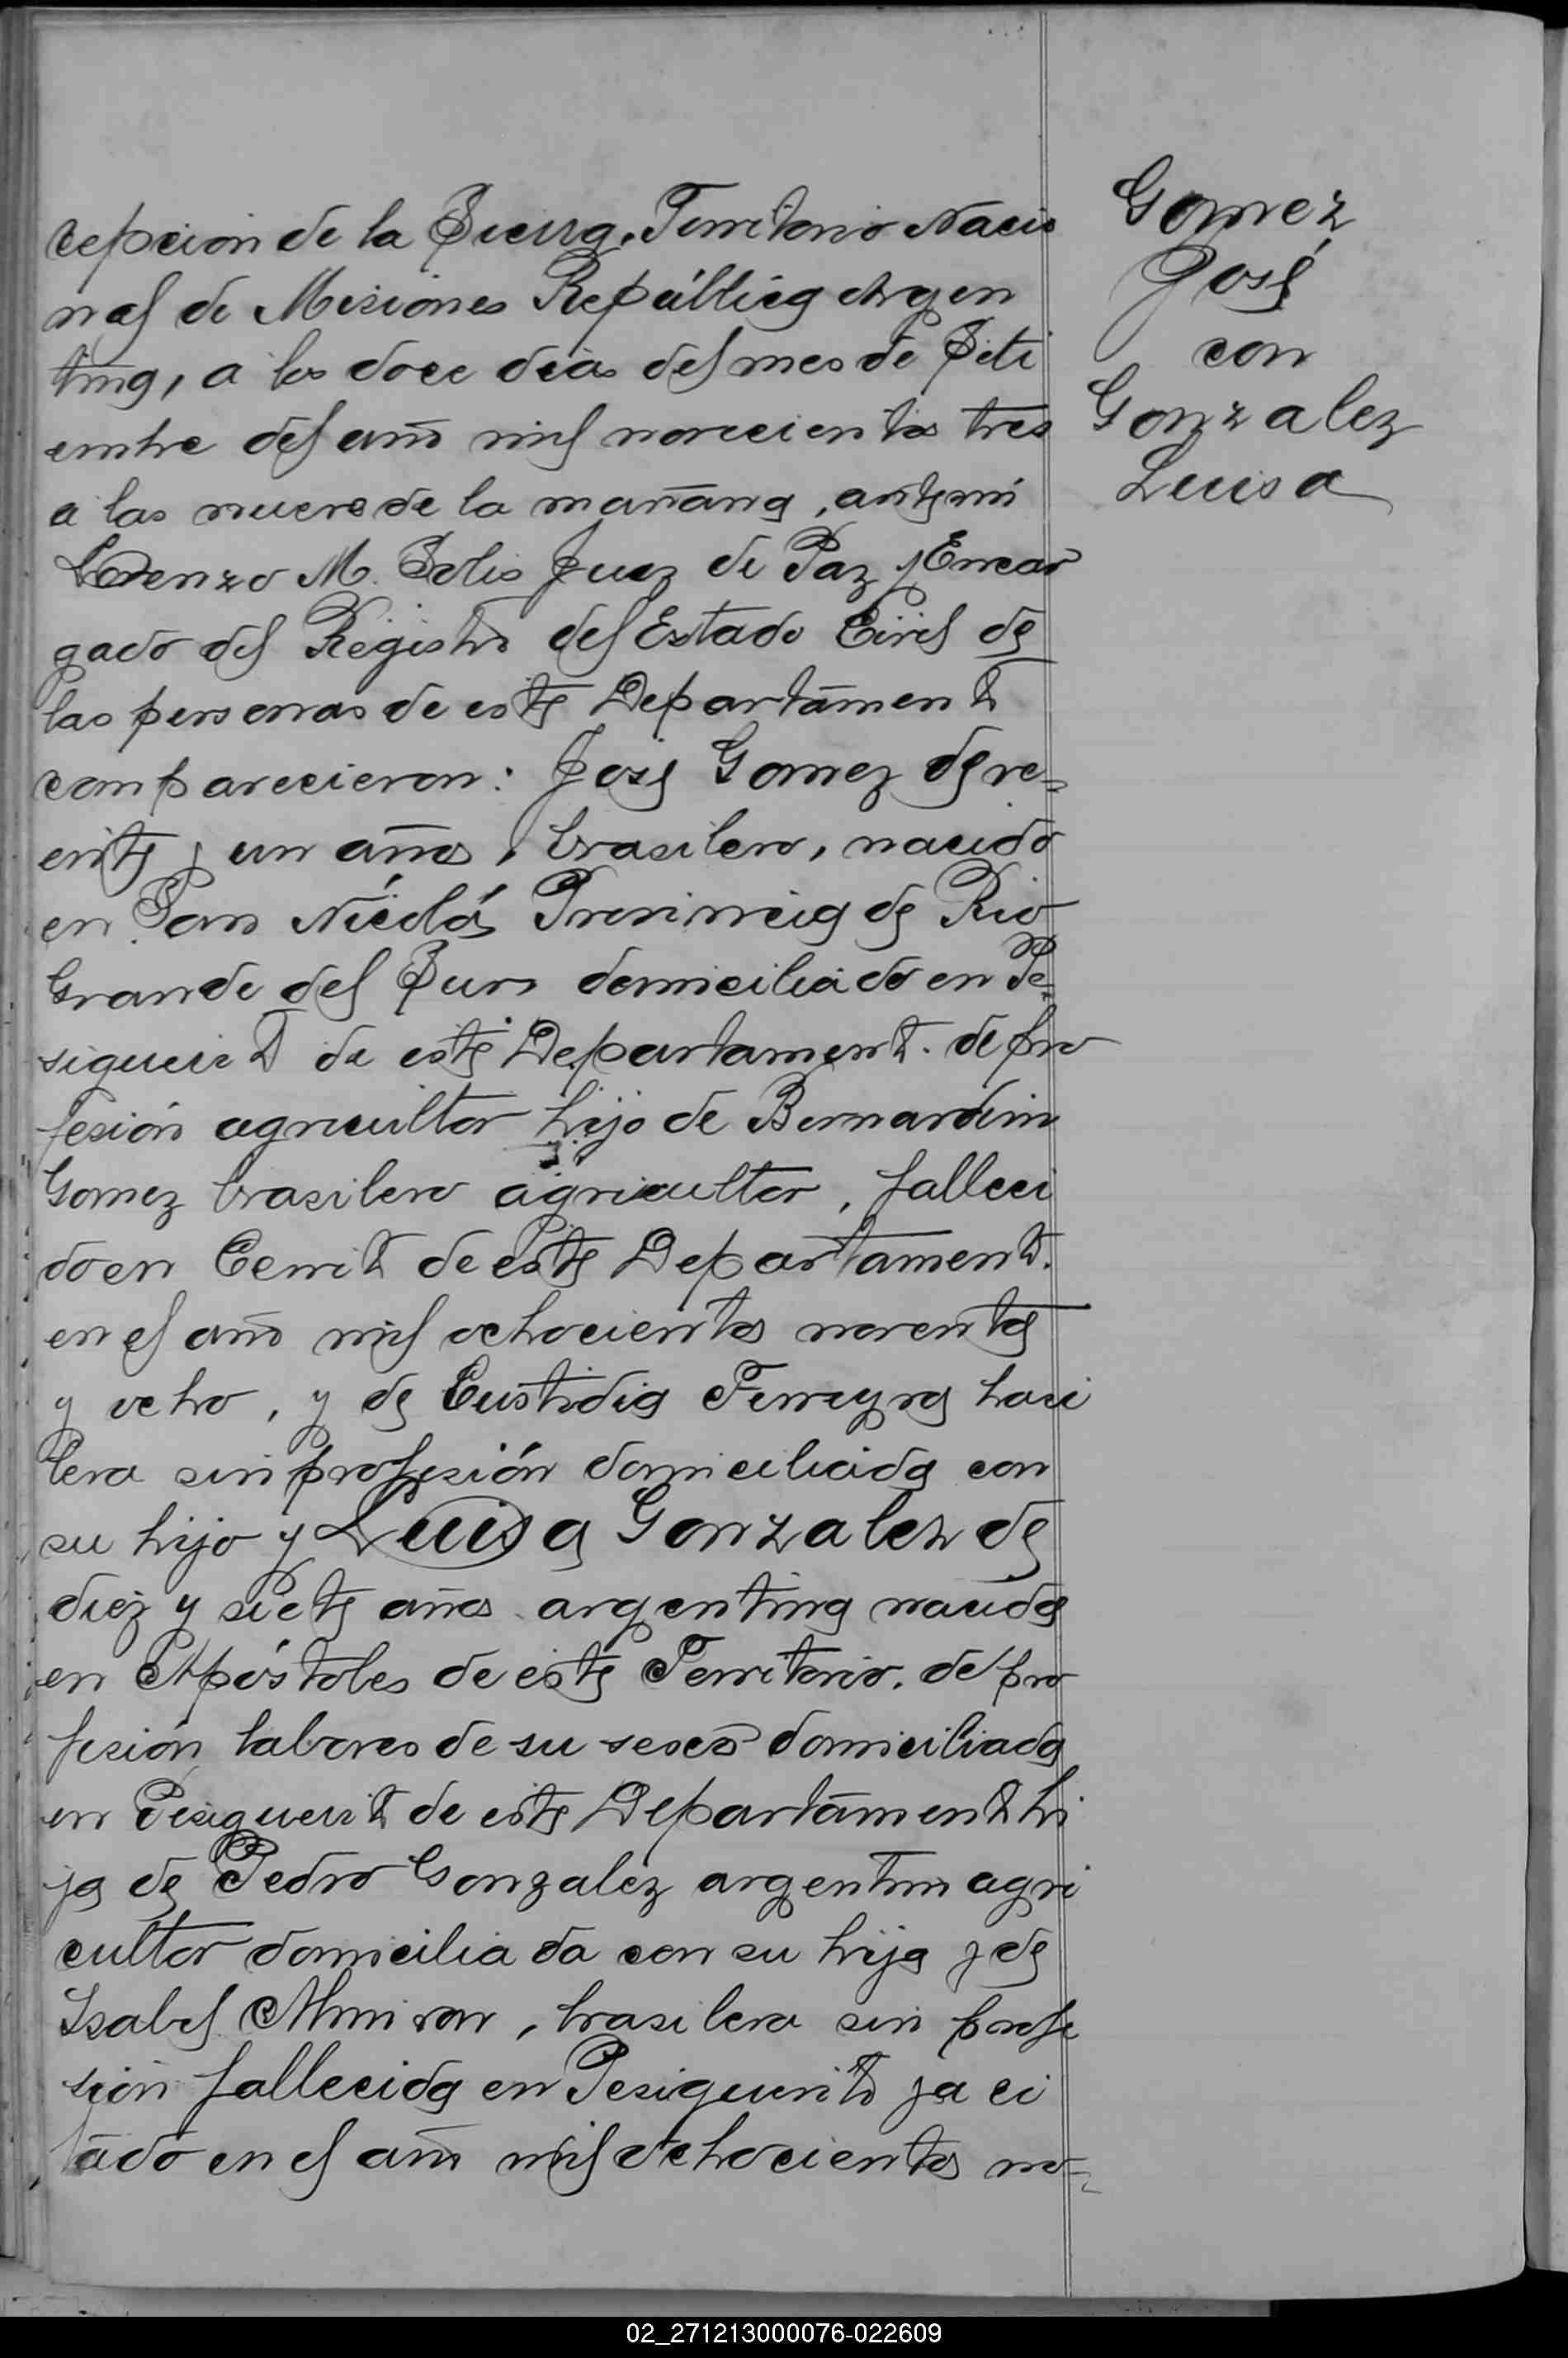 cepcion de la Sierra, Territorio Nacio
nal de Misiones República Argen
tina, a los doce dias del mes de Seti
embre del año mil novecientos tres
a las nueve de la mañana, ante mi
Lorenzo M. Solis Juez de Paz y Encar
gado del Registro del Estado Civil de
las personas de este Departamento
comparecieron: José Gomez de ve-
inte y un años, brasilero, nacido
en San Nicolás Provincia de Rio
Grande del Sur domiciliado en Pe-
siguerito de este Departamento. de pro
fesión agricultor hijo de Bernardino
Gomez brasilero agricultor, falleci
do en Cerrito de este Departamento.
en el año mil ochocientos noventa
y ocho, y de Custodia Ferreyra brasi
lera sin profesión domiciliada con
su hijo y Luisa Gonzalez de
diez y siete años argentina nacida
en Apóstoles de este Territorio. de pro
fesión labores de su sexo domiciliada
en Pesiguerito de este Departamento hi
ja de Pedro Gonzalez argentino agri
cultor domiciliada con su hija y de
Isabel Almiron, brasilera sin profe
sión fallecida en Pesiguerito ya ci
tado en el año mil ochocientos no-
Gomez
José
con
Gonzalez
Luisa
02_271213000076-022609